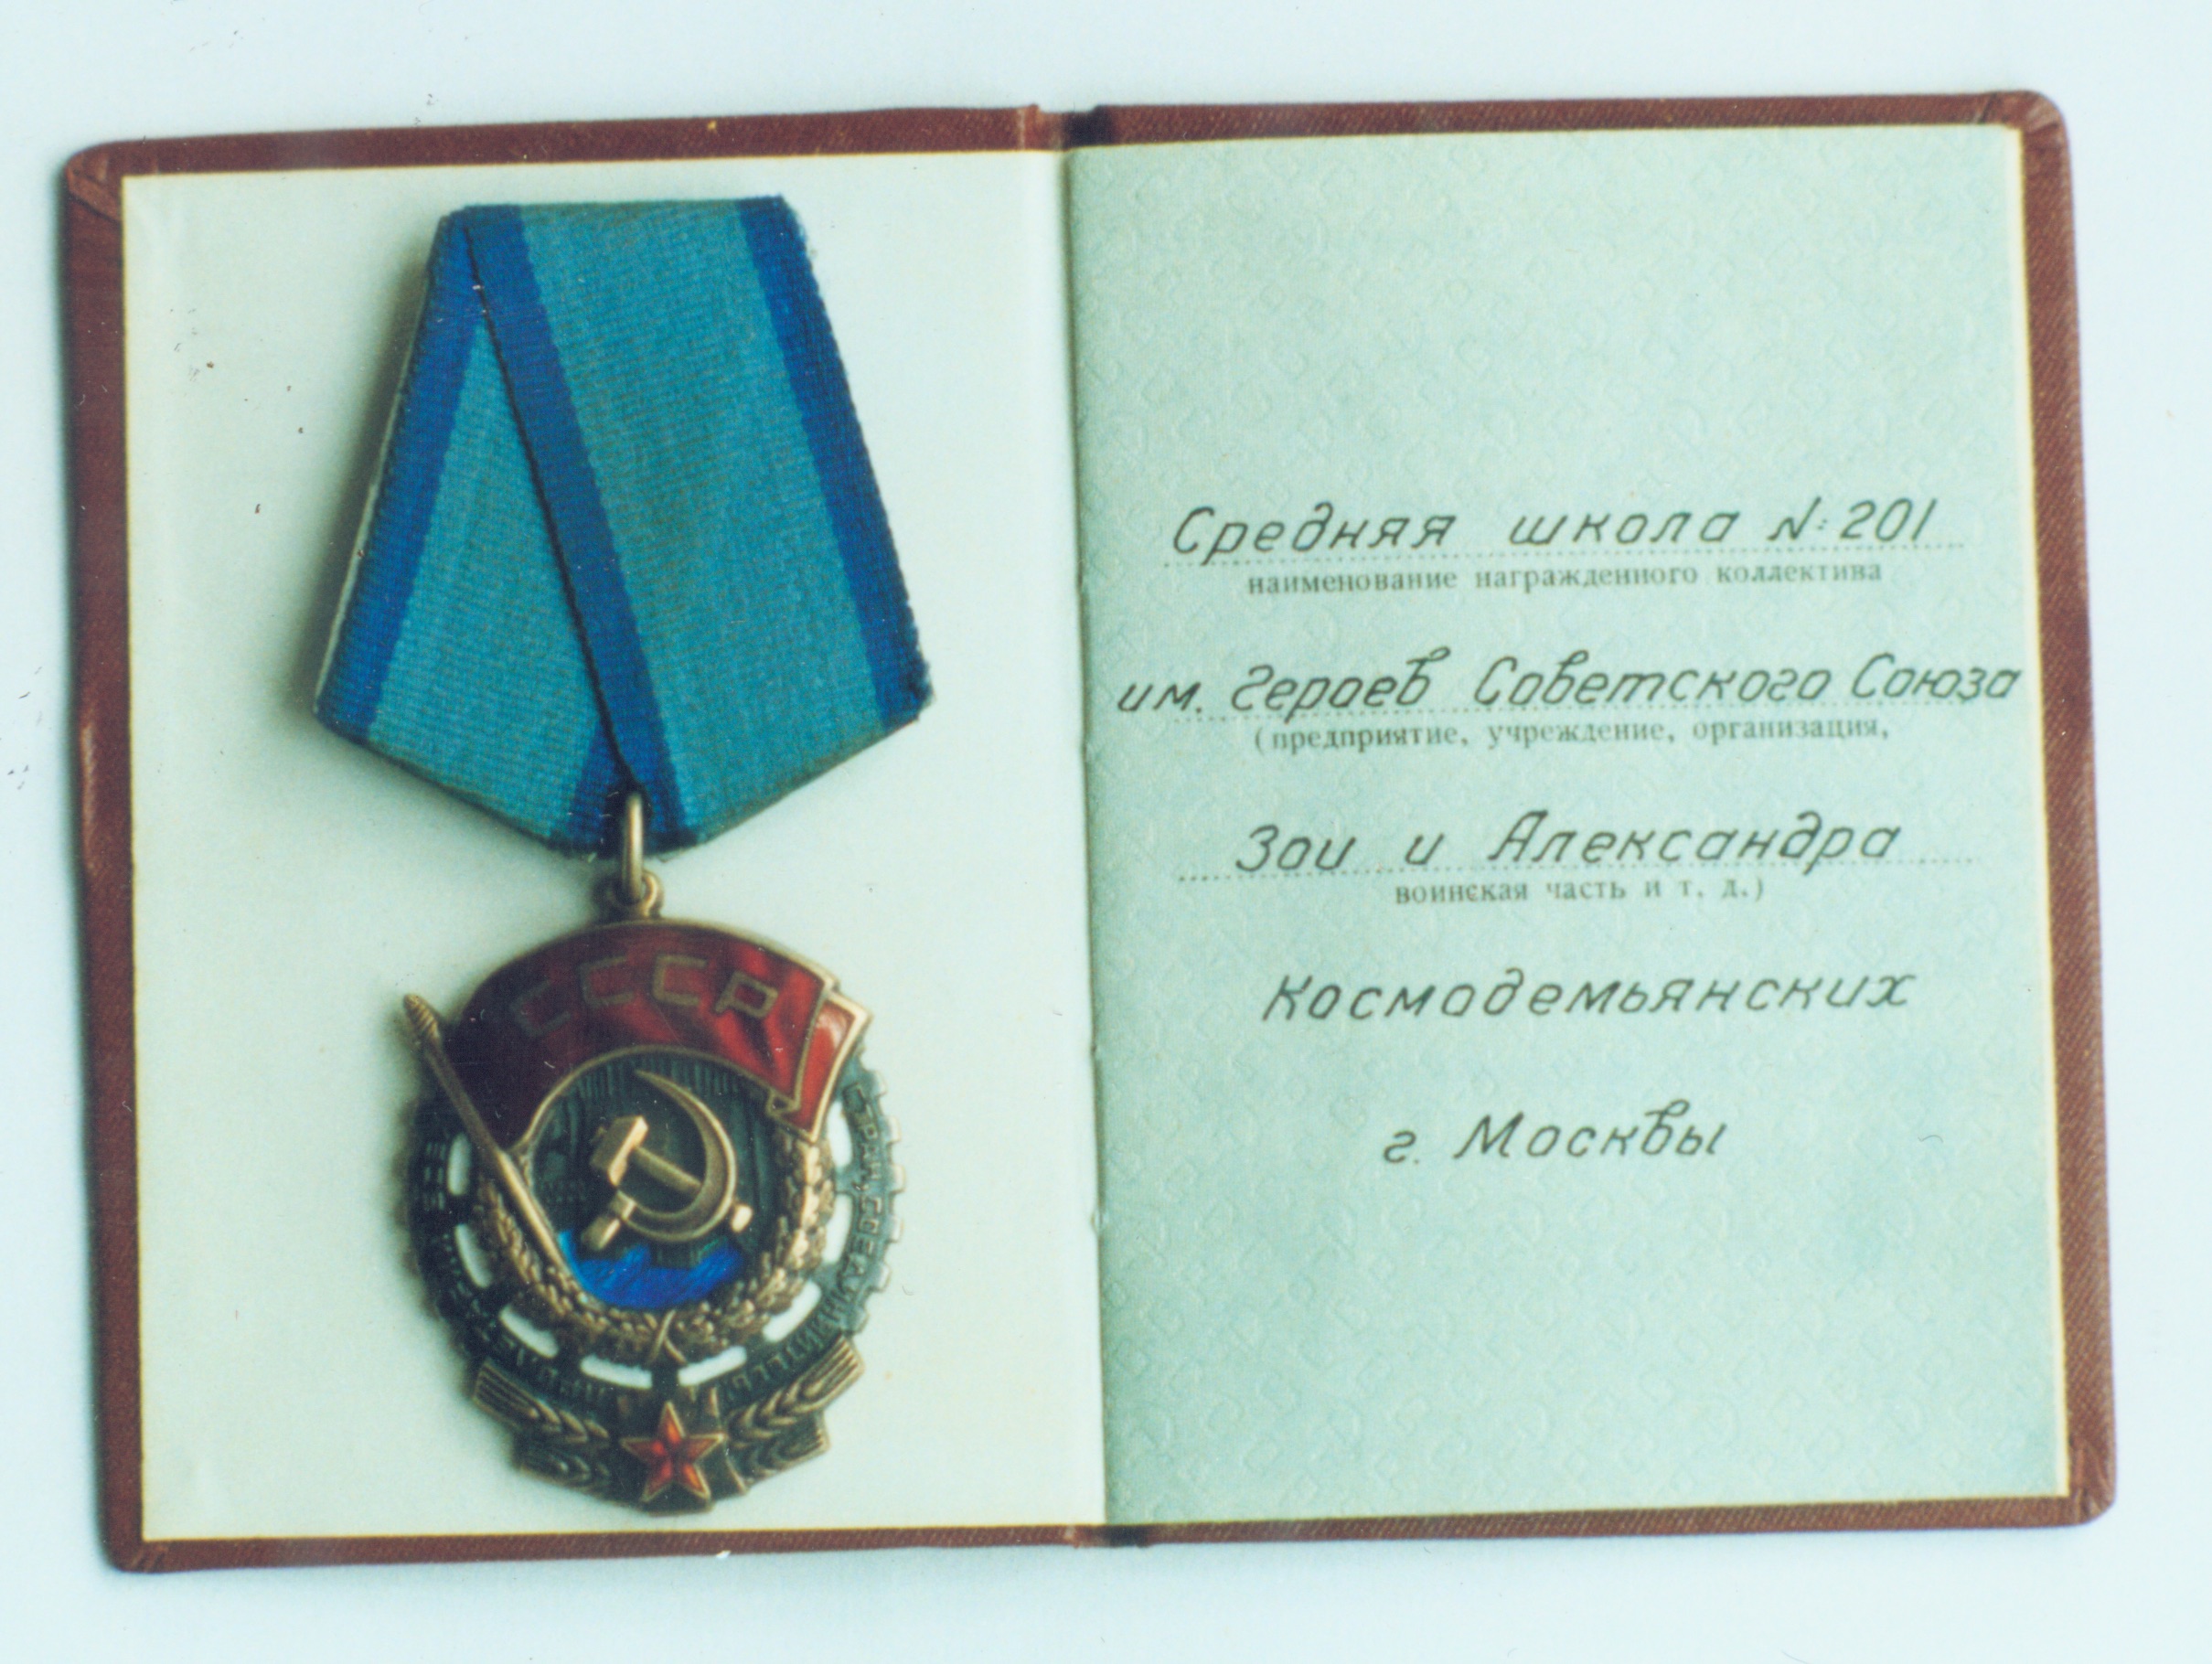 СССР
Средняя школа №: 201
наименование награжденного коллектива
им. Героев Советского Союза
(предприятие, учреждение, организация,
Зои и Александра
воинская часть и т. д.)
Космодемьянских
г. Москвы